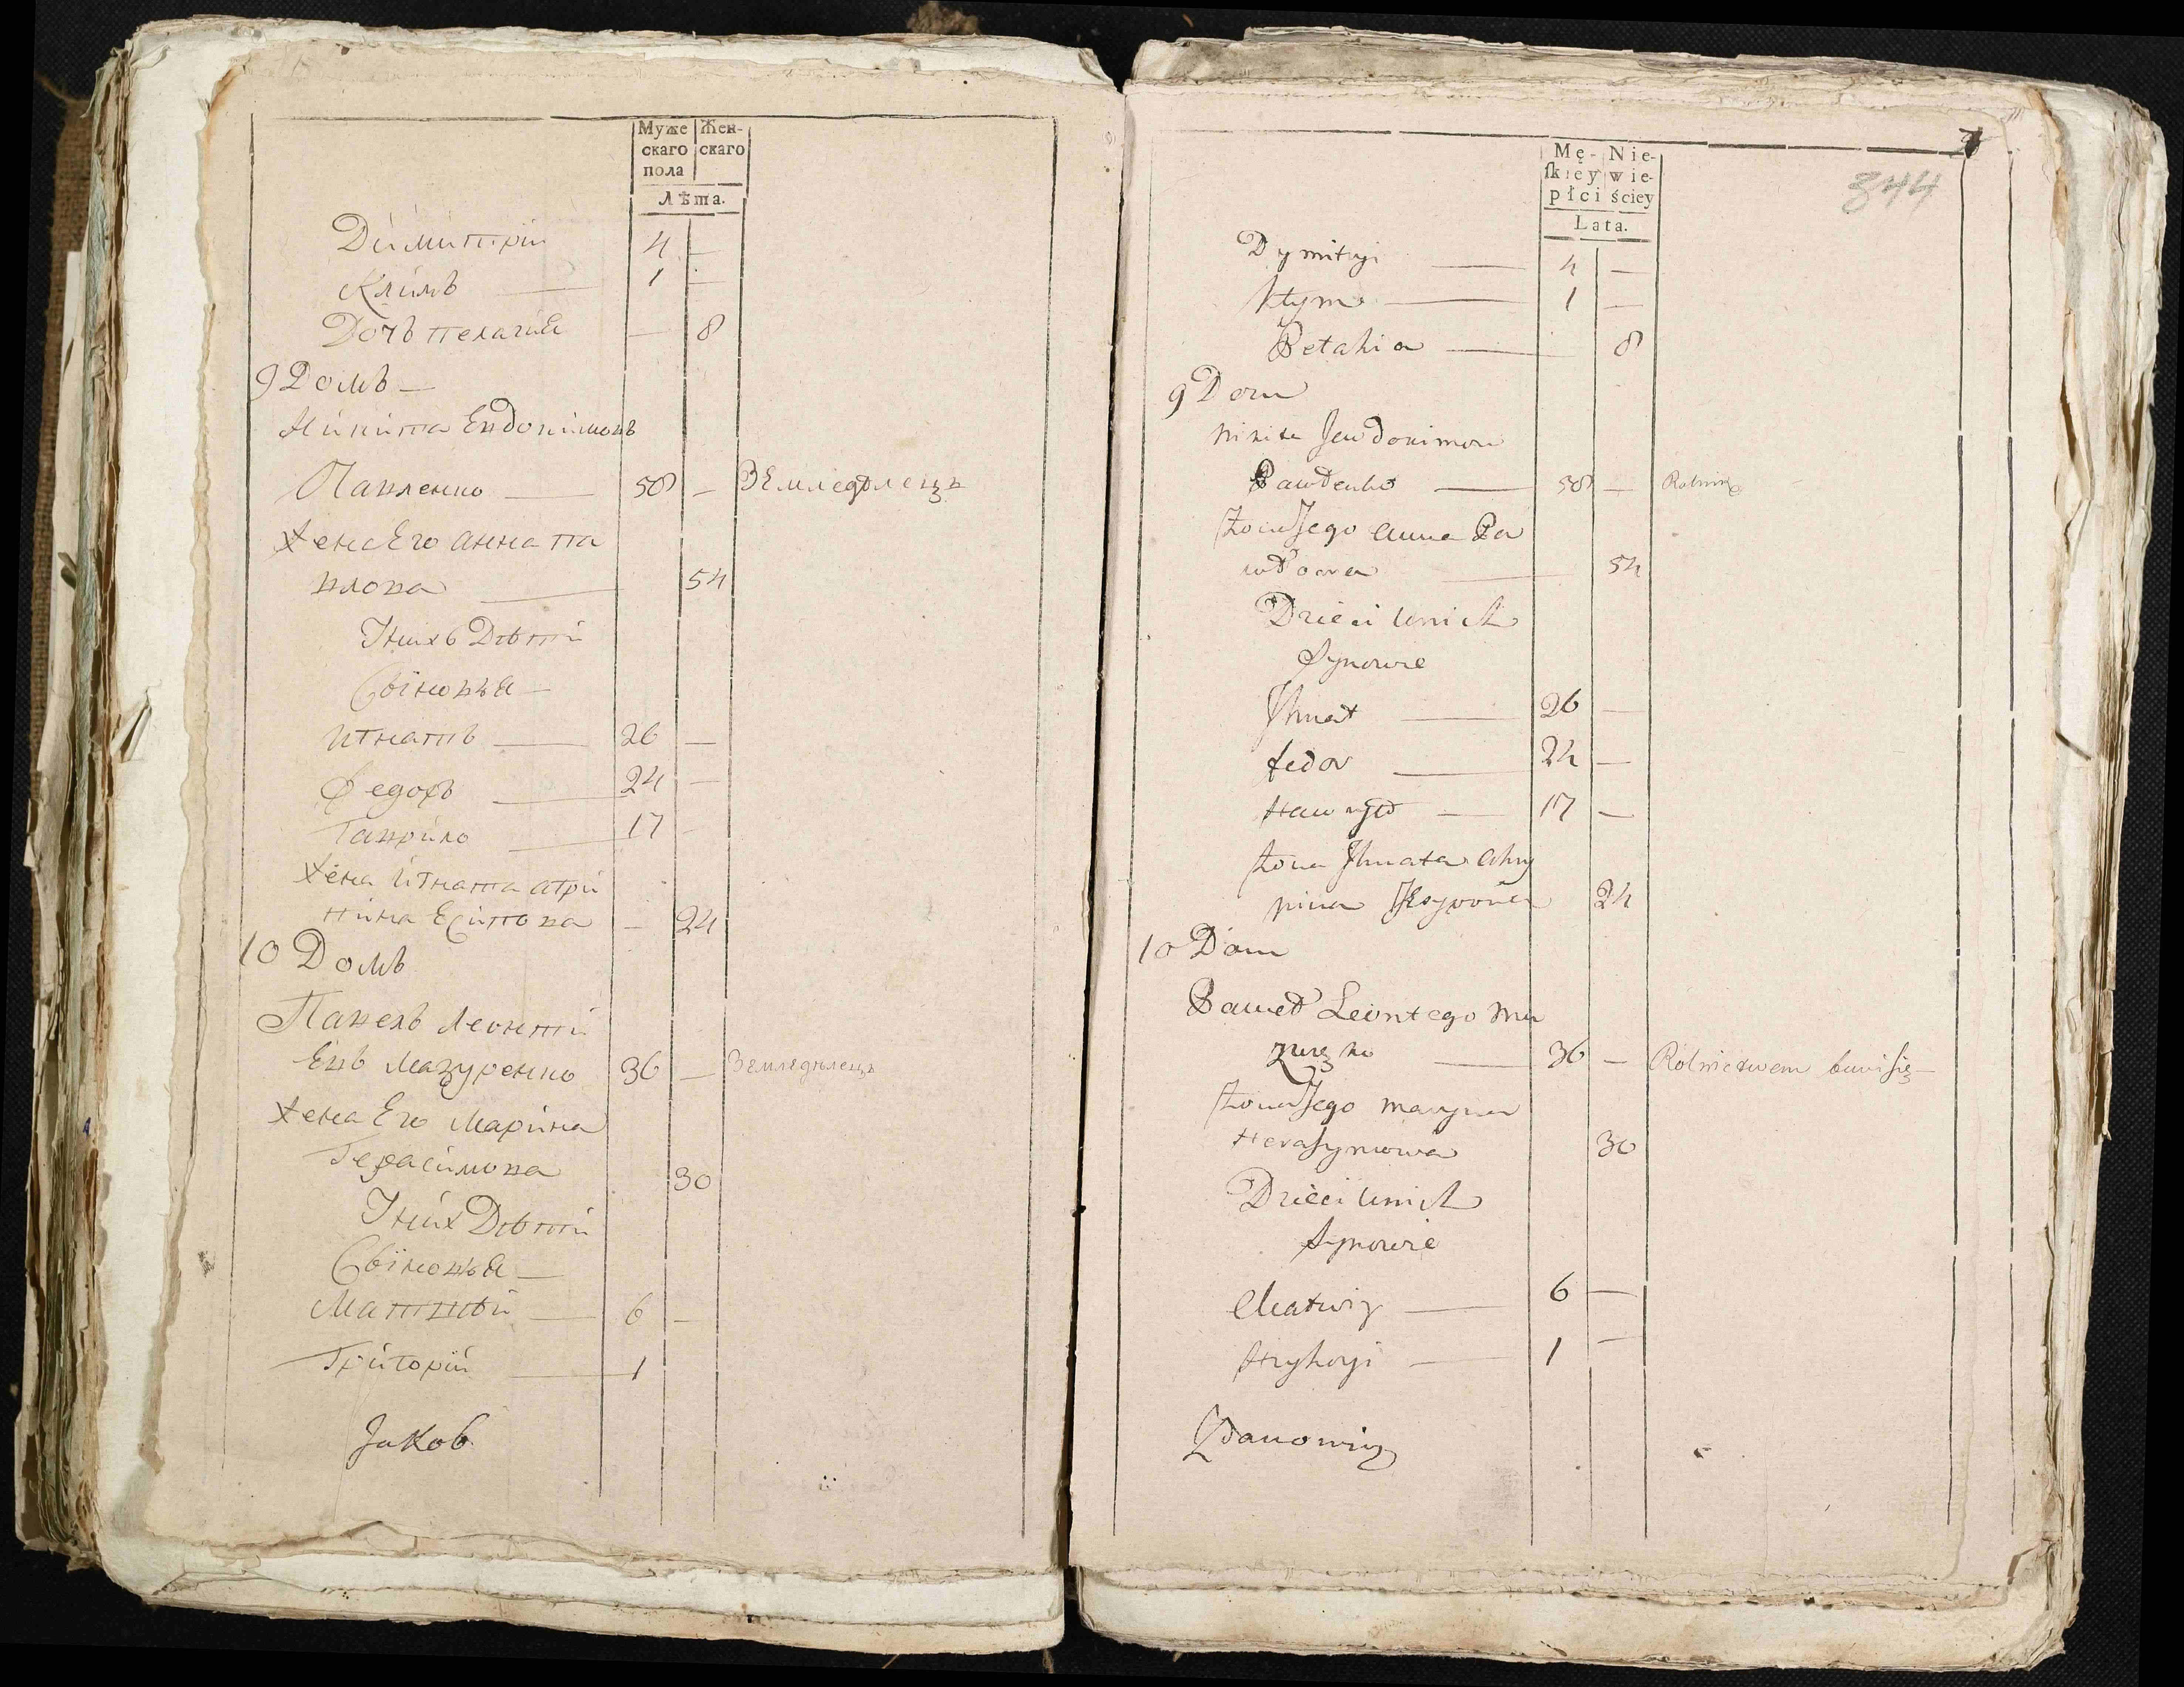 Муже Жен-
скаго скаго
пола
Лѣта.
Димитрій 4 —
Климъ — 1 —
Дочь пелагиѣя — 8
9 Домъ —
Никита Евдокимовъ
Павленко — 58 — Земледѣлецъ
Жена Его Анна па
влова — 54
У нихъ Дѣти
Сыновья —
Игнатъ — 26 —
Федоръ — 24 —
Гаврило — 17 —
Жена Игната Агри
пина Есипова — 24
10 Домъ
Павелъ Леонтй
Евъ Мазуренко 36 — Земледѣлецъ
Жена Его Марина
Герасимова 30
У них Дѣти
Сыновья —
Матвѣй — 6 —
Григорій — 1
Jakob
Mę- Nie-
ſkiey wie-
płci ściey
Lata.
344
Dymitryi — 4 —
Kłym — 1 —
Pełahia — 8
9 Dom
Nikita Jewdokimow
Pawłenko — 58 — Rolnik
Żona Jego Anna Pa
włowa — 54
Dzieci U nich
Synowie
Jhnat — 26 —
Fedor — 24 —
Hawryło — 17 —
Żona Jhnata Ahry
pina Jesypowa 24
10 Dom
Paweł Leontego Ma
zurenko — 36 — Rolnictwem bawi się —
Żona Jego Maryna
Herasymowa 30
Dzieci U nich
Synowie
Matwiy — 6 —
Hryhoryi — 1 —
Zdanowicz